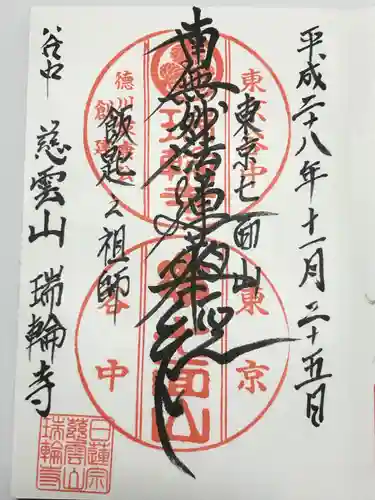 平成二十八年十一月二十五日
東京七面山
南無妙法蓮華経
飯匙之祖師
谷中 慈雲山 瑞輪寺
東京谷中
瑞輪寺
徳川家康
創建
東京
七面山
谷中
日蓮宗
慈雲山
瑞輪寺